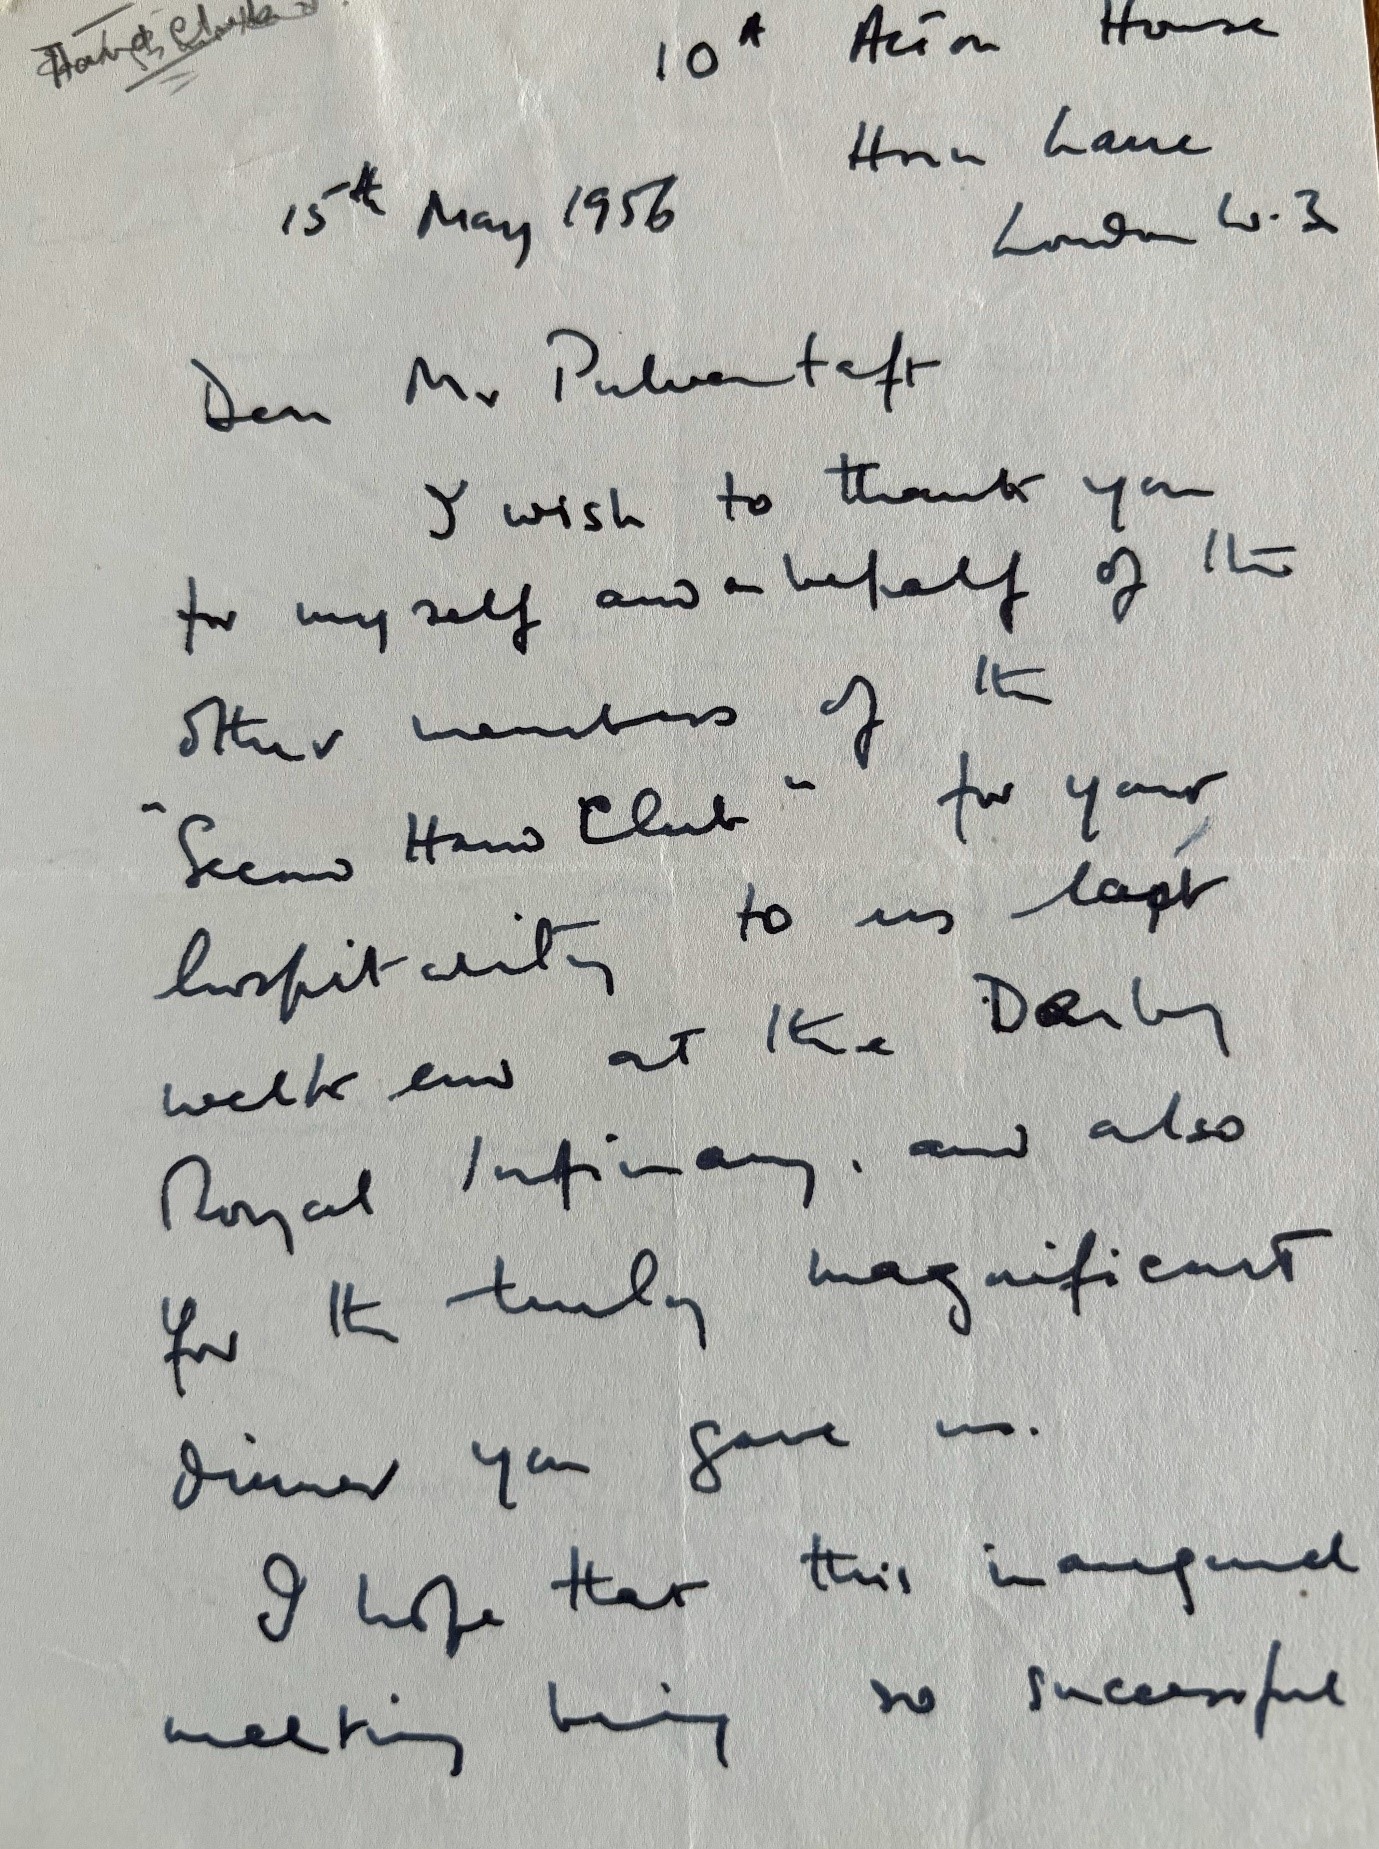 10A Acton House
Horn Lane
15th May 1956
London W.3
Dear Mr Pulvertaft
I wish to thank you
for myself and on behalf of the
other members of the
"Second Hand Club" for your
hospitality to us last
week end at the Derby
Royal Infirmary, and also
for the truly magnificent
dinner you gave us.
I hope that this inaugural
meeting being so successful